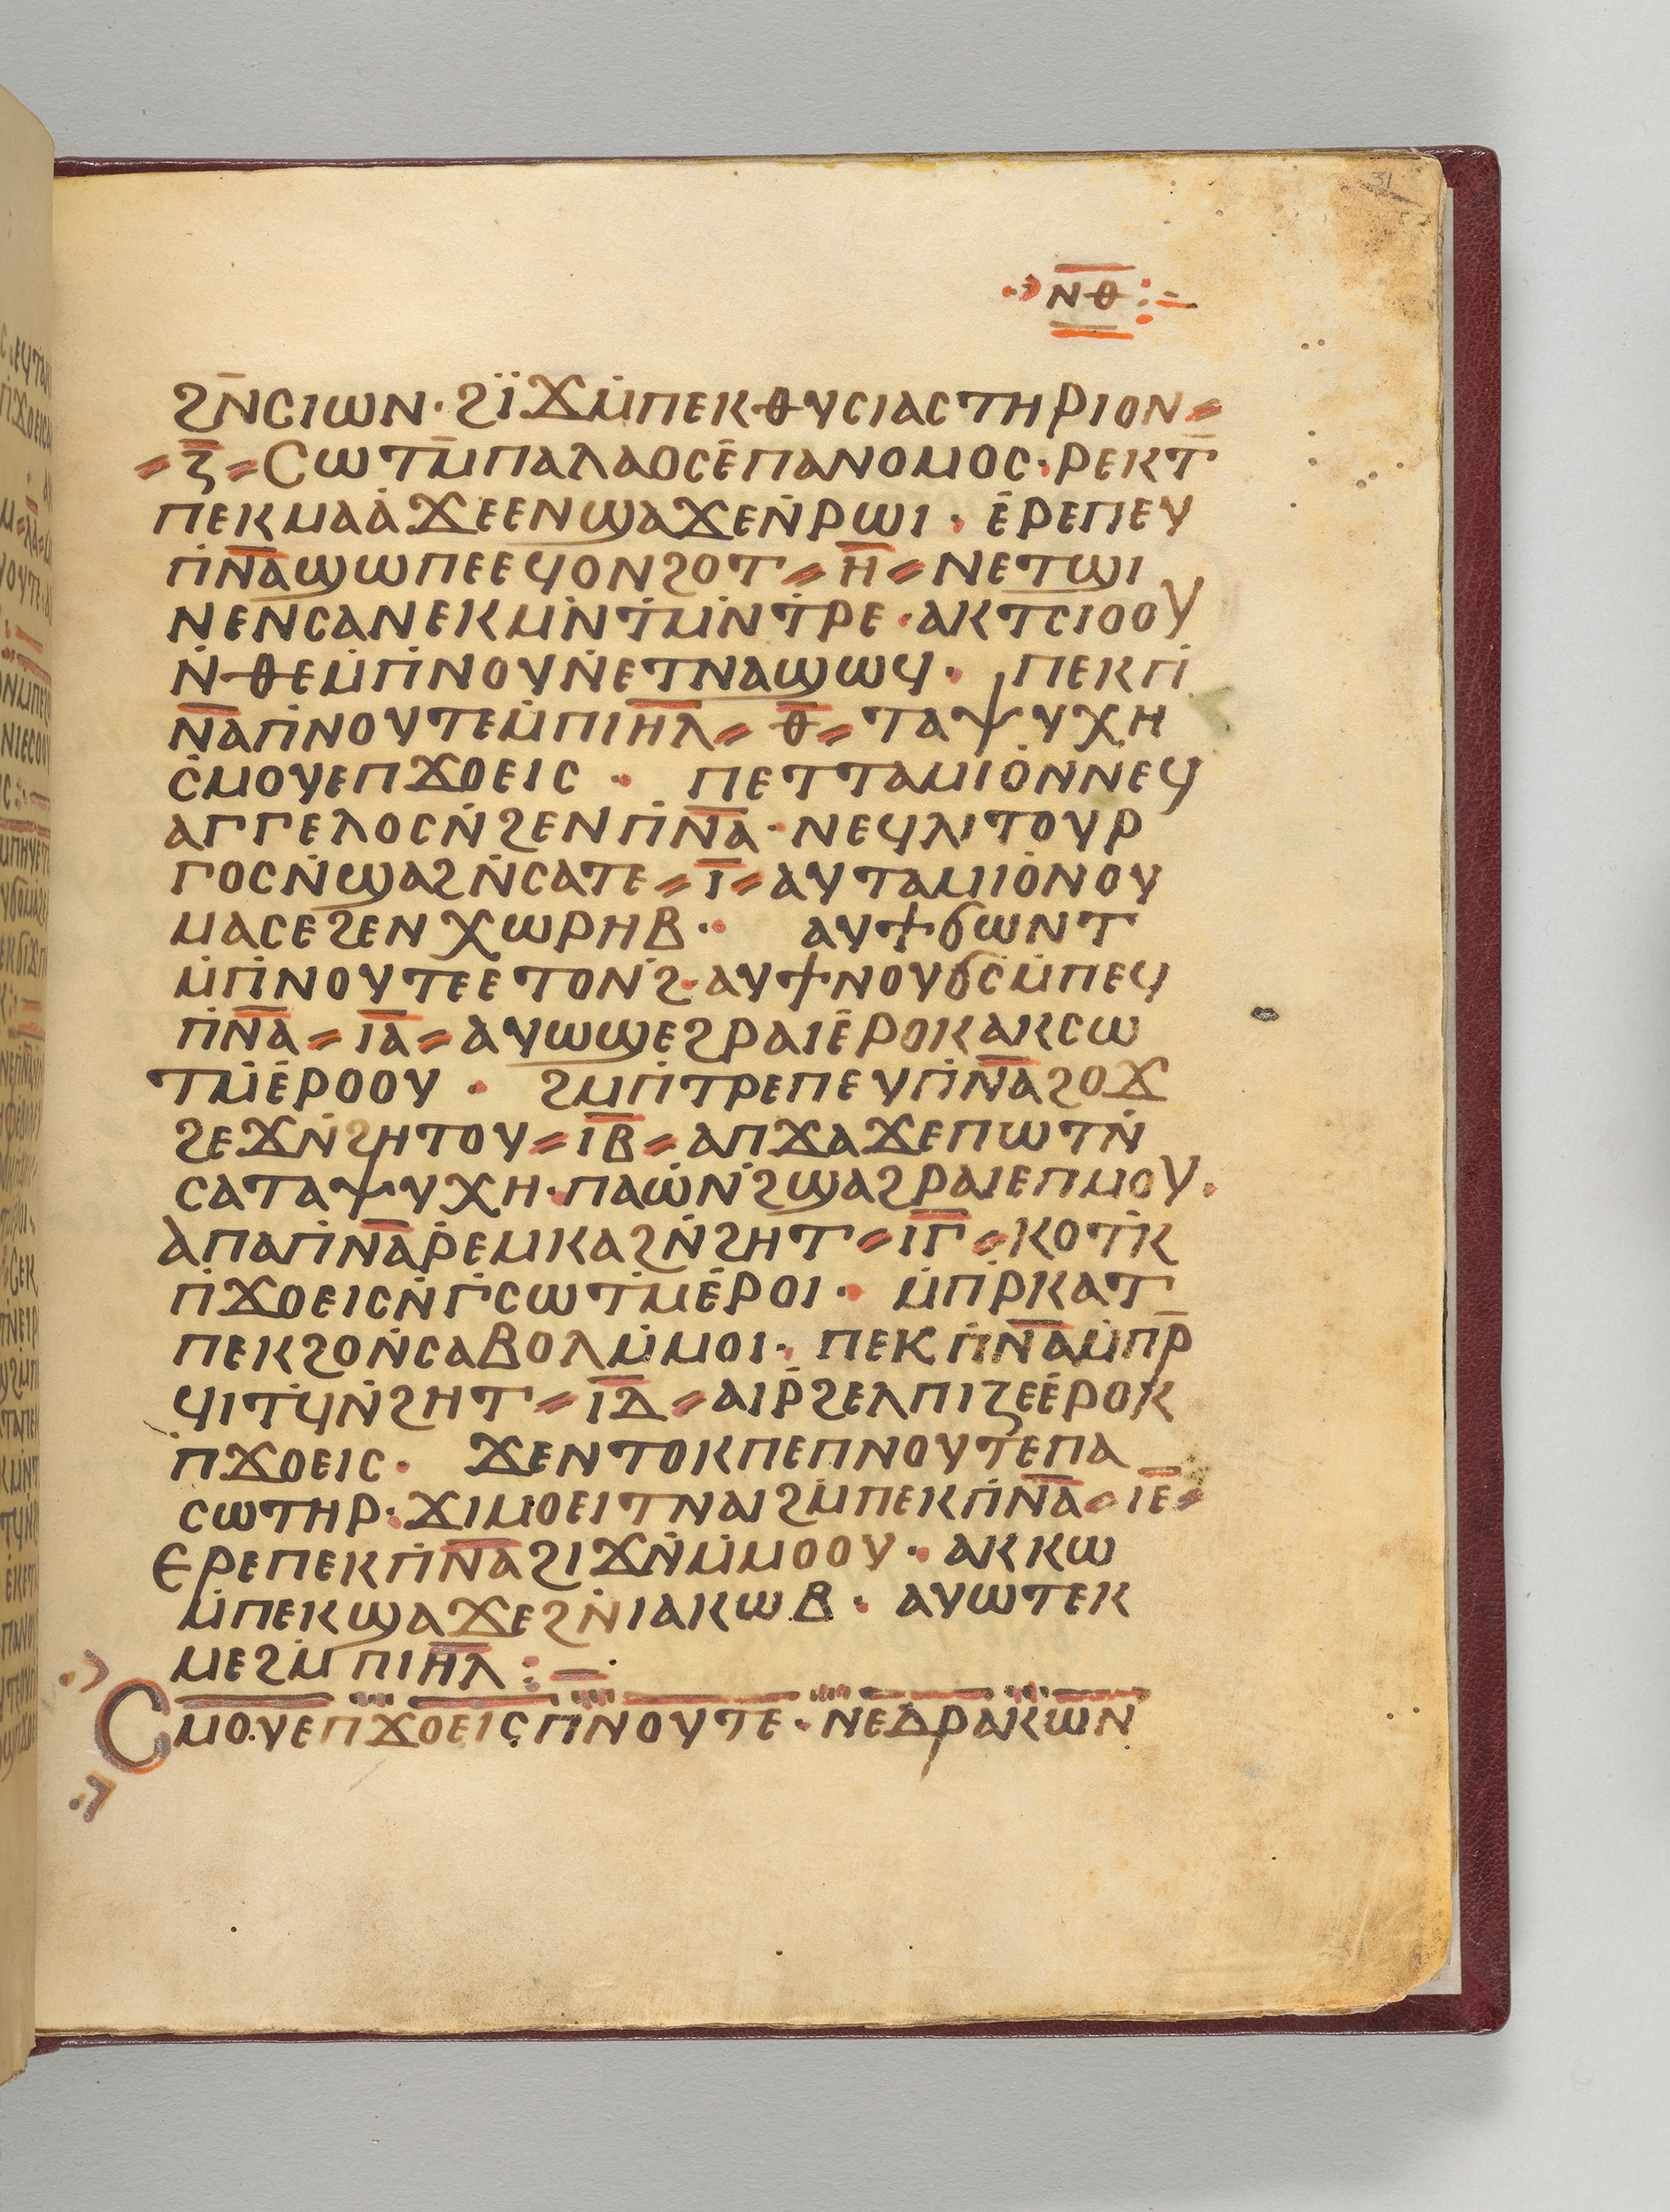 31
ⲛⲑ
ϩⲛ̄ⲥⲓⲱⲛ· ϩⲓ̈ϫⲙ̇ⲡⲉⲕⲑⲩⲥⲓⲁⲥⲧⲏⲣⲓⲟⲛ⸗
⸗ⲍ̄⸗Ⲥⲱⲧⲙ̄ⲡⲁⲗⲁⲟⲥⲉ̄ⲡⲁⲛⲟⲙⲟⲥ·ⲣⲉⲕⲧ̄
ⲡⲉⲕⲙⲁⲁ̇ϫⲉⲉⲛϣⲁϫⲉⲛ̇ⲣⲱⲓ· ⲉ̇ⲣⲉⲡⲉⲩ
ⲡ̇ⲛ̄ⲁ̄ϣⲱⲡⲉⲉϥⲟⲛϩⲟⲧ⸗ⲏ̄⸗ⲛⲉⲧϣⲓ
ⲛⲉⲛⲥⲁⲛⲉⲕⲙⲛ̇ⲧ̇ⲙⲛ̇ⲧ̇ⲣⲉ·ⲁⲕⲧⲥⲓⲟⲟⲩ
ⲛ̇ⲑⲉⲙ̇ⲡ̇ⲛⲟⲩⲛ̇ⲉⲧⲛⲁϣⲱϥ· ⲡⲉⲕⲡ̇
ⲛ̄ⲁ̄ⲡ̇ⲛⲟⲩⲧⲉⲙ̇ⲡⲓⲏ̄ⲗ̄⸗ⲑ̄⸗ⲧⲁⲯⲩⲭⲏ
ⲥ̇ⲙⲟⲩⲉⲡϫⲟⲉⲓⲥ· ⲡⲉⲧⲧⲁⲙⲓⲟ̇ⲛⲛⲉϥ
ⲁⲅⲅⲉⲗⲟⲥⲛ̇ϩⲉⲛⲡ̇ⲛ̄ⲁ̄·ⲛⲉϥⲗⲓⲧⲟⲩⲣ
ⲅⲟⲥⲛ̇ϣⲁϩⲛ̇ⲥⲁⲧⲉ⸗ⲓ̄⸗ⲁⲩⲧⲁⲙⲓⲟ̇ⲛⲟⲩ
ⲙⲁⲥⲉϩⲉⲛⲭⲱⲣⲏⲃ· ⲁⲩϯϭⲱⲛⲧ
ⲙ̇ⲡ̇ⲛⲟⲩⲧⲉⲉⲧⲟⲛ̇ϩ·ⲁⲩϯⲛⲟⲩϭⲥ̇ⲙ̇ⲡⲉϥ
ⲡ̇ⲛ̄ⲁ̄⸗ⲓ̄ⲁ̄⸗ⲁⲩⲱϣⲉϩⲣⲁⲓⲉ̇ⲣⲟⲕⲁⲕⲥⲱ
ⲧⲙ̇ⲉ̇ⲣⲟⲟⲩ· ϩⲙⲡ̇ⲧⲣⲉⲡⲉⲩⲡ̇ⲛ̄ⲁ̄ϩⲟϫ
ϩⲉϫⲛ̇ϩⲏⲧⲟⲩ⸗ⲓ̄ⲃ̄⸗ⲁⲡϫⲁϫⲉⲡⲱⲧⲛ̇
ⲥⲁⲧⲁⲯⲩⲭⲏ·ⲡⲁⲱ̇ⲛ̇ϩϣⲁϩⲣⲁⲓⲉⲡⲙⲟⲩ·
ⲁⲡⲁⲡ̇ⲛ̄ⲁ̄ⲣ̇ⲉⲙⲕⲁϩⲛ̇ϩⲏⲧ⸗ⲓ̄ⲅ̄⸗ⲕⲟⲧⲕ̇
ⲡ̇ϫⲟⲉⲓⲥⲛ̇ⲅ̇ⲥⲱⲧⲙ̇ⲉ̇ⲣⲟⲓ· ⲙ̇ⲡ̇ⲣⲕⲁⲧ
ⲡⲉⲕϩⲟⲛ̇ⲥⲁⲃⲟⲗⲙ̇ⲙⲟⲓ· ⲡⲉⲕⲡ̇ⲛ̄ⲁ̄ⲙ̇ⲡⲣ̄
ϥⲓⲧϥ̇ⲛ̇ϩⲏⲧ⸗ⲓ̄ⲇ̄⸗ⲁⲓⲣ̇ϩⲉⲗⲡⲓⲍⲉⲉ̇ⲣⲟⲕ
ⲡϫⲟⲉⲓⲥ· ϫⲉⲛⲧⲟⲕⲡⲉⲡⲛⲟⲩⲧⲉⲡⲁ
ⲥⲱⲧⲏⲣ·ϫⲓⲙⲟⲉⲓⲧⲛⲁⲓϩⲙ̇ⲡⲉⲕⲡ̇ⲛ̄ⲁ̄⸗ⲓ̄ⲉ̄⸗
Ⲉⲣⲉⲡⲉⲕⲡ̇ⲛ̄ⲁ̄ϩⲓϫⲛ̇ⲙ̇ⲙⲟⲟⲩ· ⲁⲕⲕⲱ
ⲙ̇ⲡⲉⲕϣⲁϫⲉϩⲛ̇ⲓⲁⲕⲱⲃ· ⲁⲩⲱⲧⲉⲕ
ⲙⲉϩⲙ̇ⲡⲓⲏ̄ⲗ̄:–
Ⲥⲙⲟⲩⲉⲡϫⲟⲉⲓⲥⲡⲛⲟⲩⲧⲉ·ⲛⲉⲇⲣⲁⲕⲱⲛ